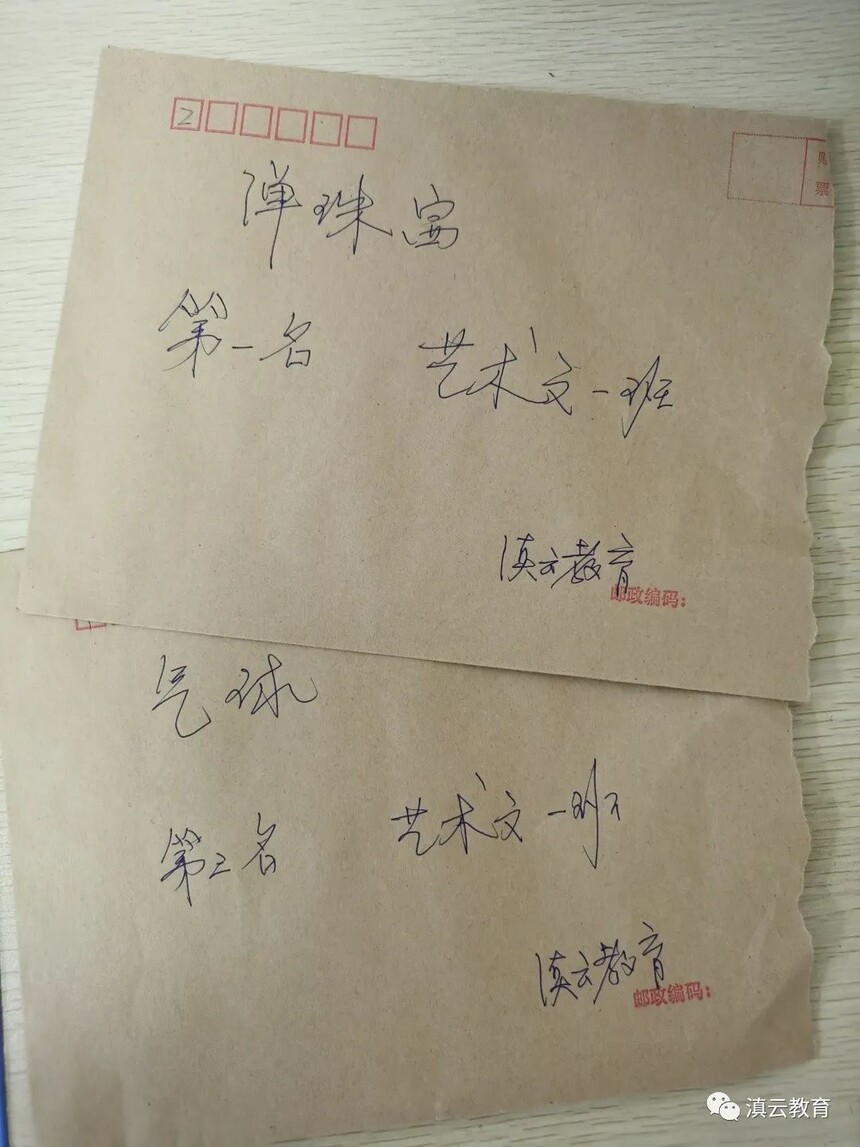 2
弹珠
票
第一名 艺术文一班
滇云教育
邮政编码：
气球
第二名 艺术文一班
滇云教育
邮政编码：
滇云教育